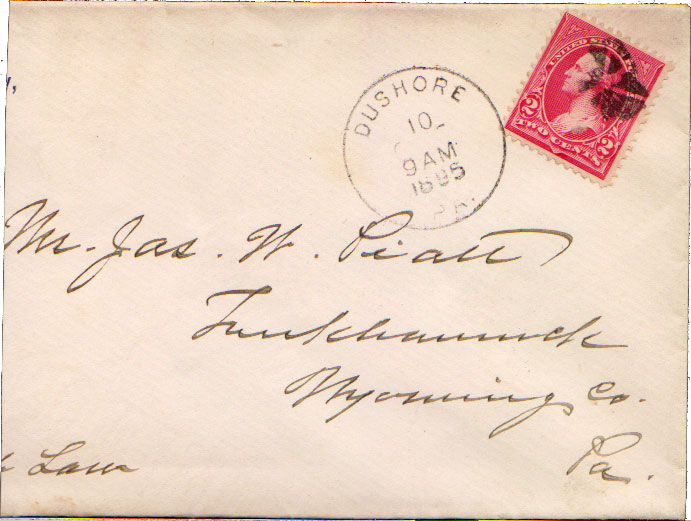 UNITED STATES
2 2
TWO CENTS
DUSHORE
10
9 AM
1895
PA.
Mr. Jas. W. Piatt
Tunkhannock
Wyoming Co.
Pa.
Law